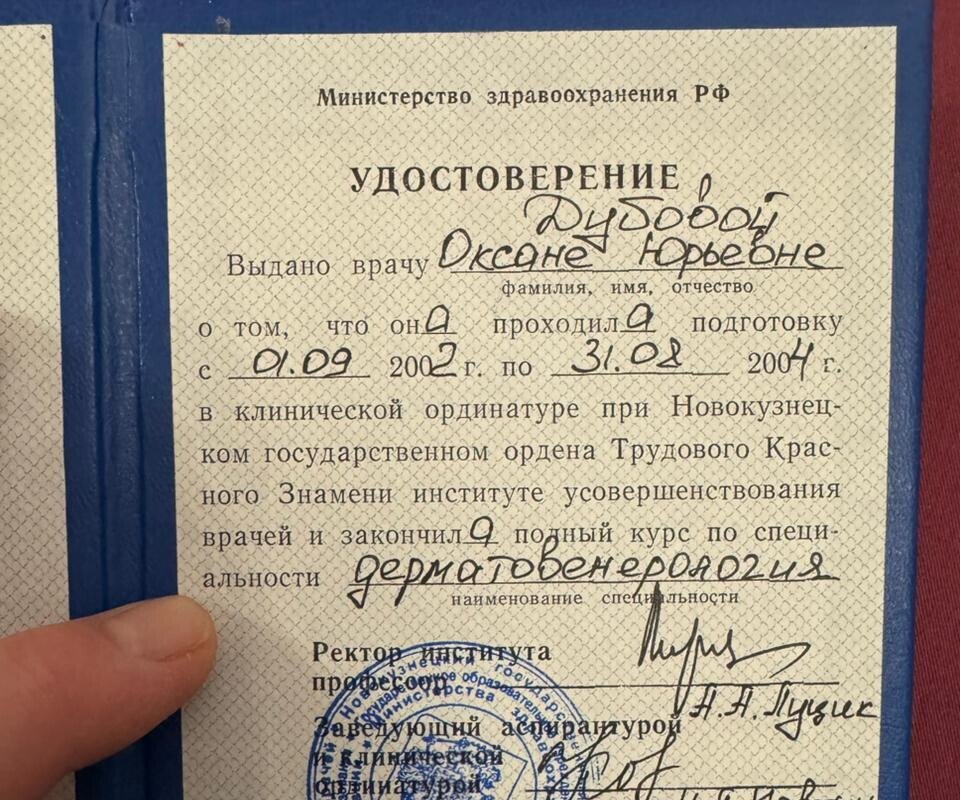 Министерство здравоохранения РФ
УДОСТОВЕРЕНИЕ
Дубовой
Выдано врачу Оксане Юрьевне
фамилия, имя, отчество
о том, что она проходила подготовку
с 01.09 2002 г. по 31.08 2004 г.
в клинической ординатуре при Новокузнец-
ком государственном ордена Трудового Крас-
ного Знамени институте усовершенствования
врачей и закончила полный курс по специ-
альности дерматовенерология
наименование специальности
Ректор института
профессор
А.А. Луцик
Заведующий аспирантурой
и клинической
ординатурой